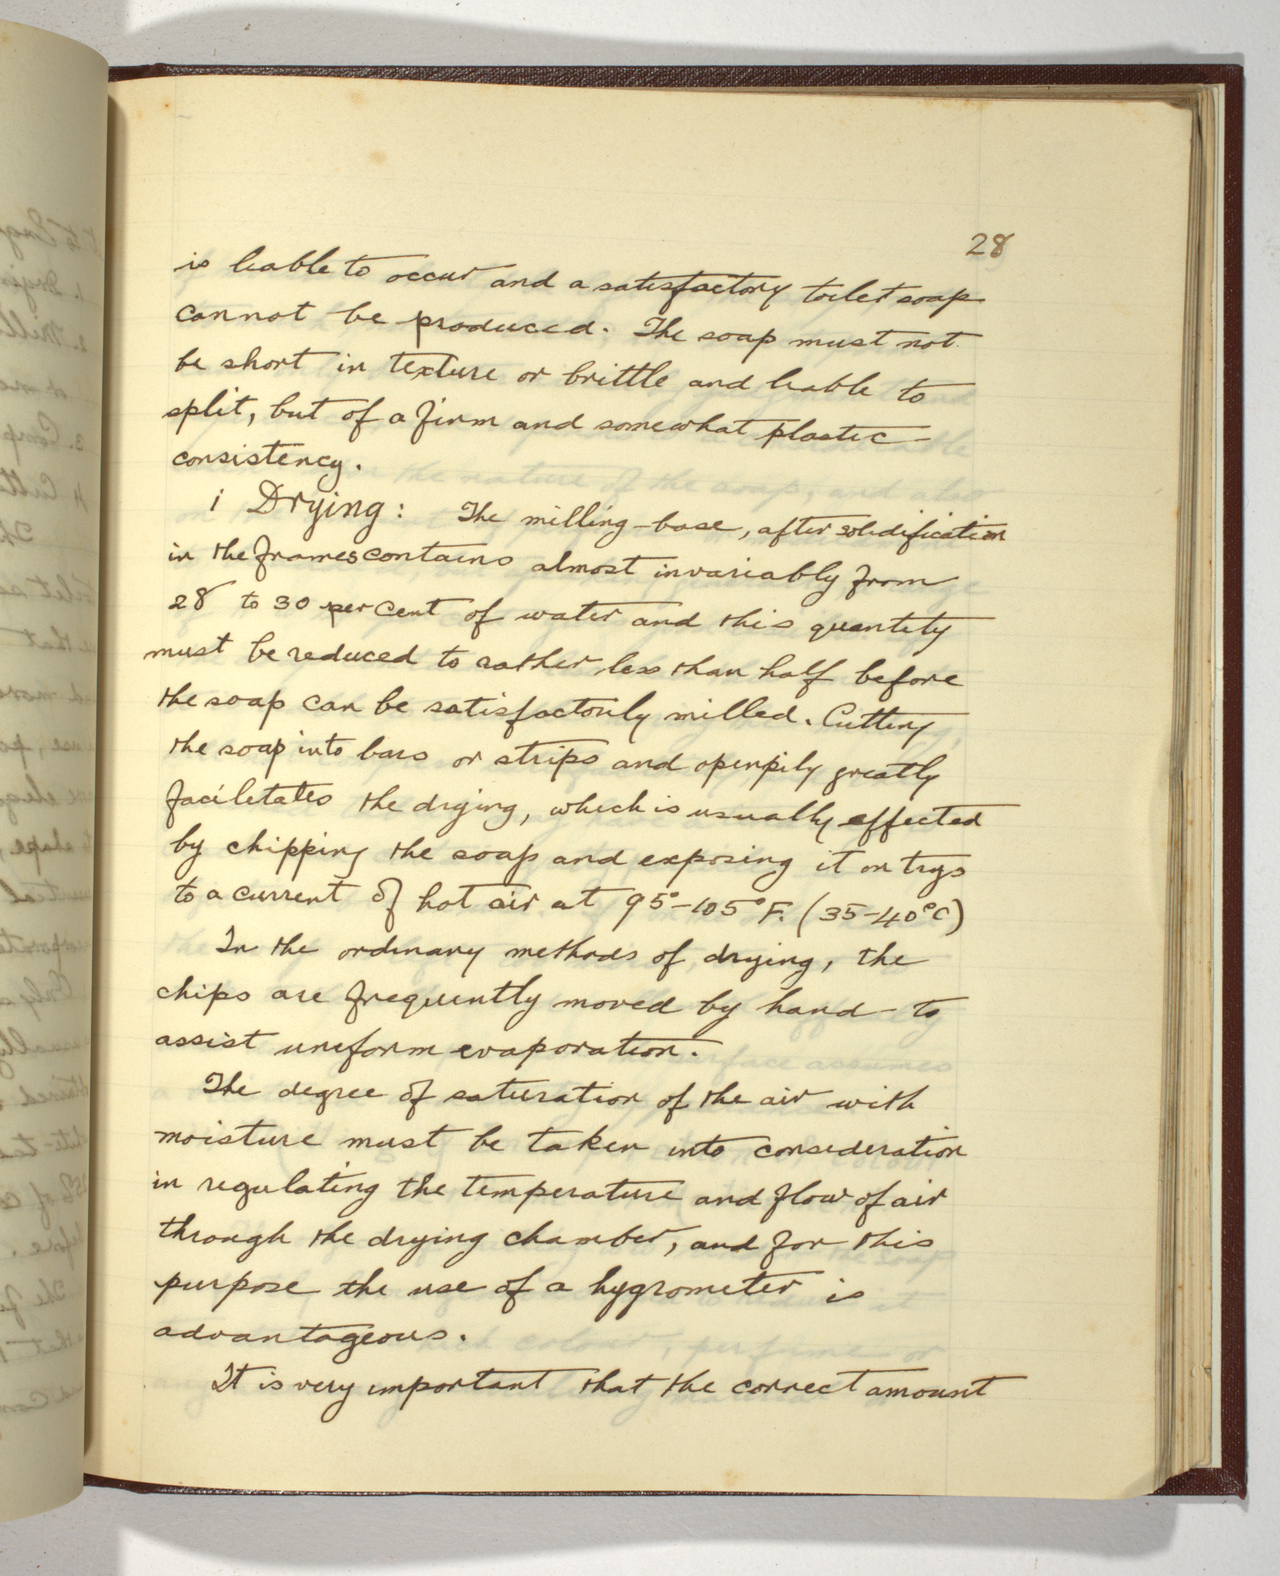 28
is liable to occur and a satisfactory toilet soap
cannot be produced. The soap must not
be short in texture or brittle and liable to
split, but of a firm and somewhat plastic
consistency.
i Drying: The milling-base, after solidification
in the frames contains almost invariably from
28 to 30 per cent of water and this quantity
must be reduced to rather less than half before
the soap can be satisfactorily milled. Cutting
the soap into bars or strips and openpily greatly
facilitates the drying, which is usually effected
by chipping the soap and exposing it on trys
to a current of hot air at 95°-105° F. (35-40°C)
In the ordinary methods of drying, the
chips are frequently moved by hand to
assist uniform evaporation.
The degree of saturation of the air with
moisture must be taken into consideration
in regulating the temperature and flow of air
through the drying chamber, and for this
purpose the use of a hygrometer is
advantageous.
It is very important that the correct amount